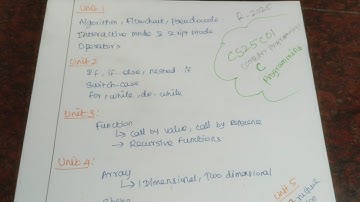 Unit 1
Algorithm, Flowchart, pseudocode
Interactive mode & script mode
Operators
Unit 2
If, if..else, nested if
Switch-case
for, while, do-while
Unit 3:
Function
↳ call by value, call by Reference
↳ Recursive functions
Unit 4:
Array
↳ 1 Dimensional, Two dimensional
R-2025
CS25C01
Computer Programming
C
Programming
Unit 5